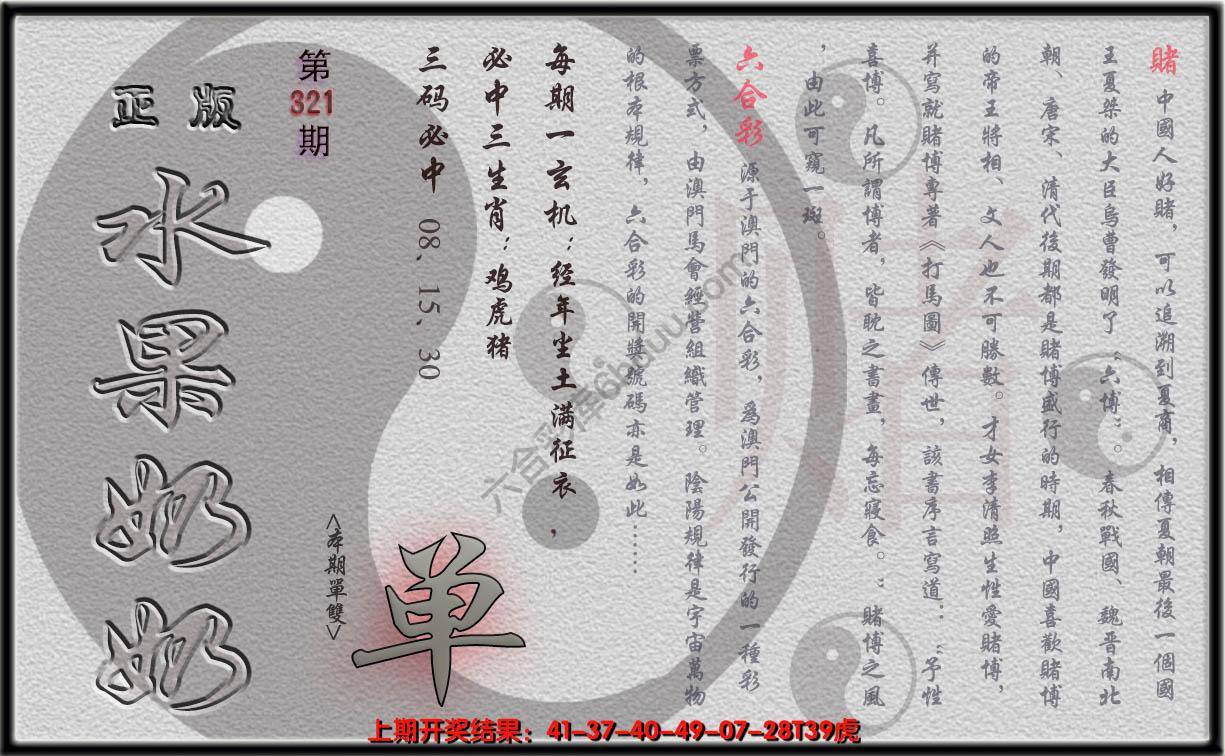 賭 中國人好賭，可以追溯到夏商，相傳夏朝最後一個國
王夏桀的大臣烏曹發明了“六博”。春秋戰國、魏晋南北
朝、唐宋、清代後期都是賭博盛行的時期，中國喜歡賭博
的帝王將相、文人也不可勝數。才女李清照生性愛賭博，
并寫就賭博專著《打馬圖》傳世，該書序言寫道：“予性
喜博。凡所謂博者，皆耽之書畫，每忘寢食。”賭博之風
，由此可窺一斑。
六合彩 源于澳門的六合彩，爲澳門公開發行的一種彩
票方式，由澳門馬會經營組織管理。陰陽規律是宇宙萬物
的根本規律，六合彩的開獎號碼亦是如此……
每期一玄机：经年尘土满征衣，
必中三生肖：鸡虎猪
三码必中 08、15、30
第
321
期
<本期單雙>
单
正版
水果奶奶
六合彩库6huuu.com
赌
上期开奖结果：41-37-40-49-07-28T39虎